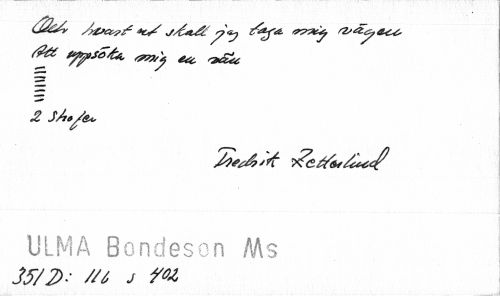 Och hvart ut skall jag taga mig vägen
Att uppsöka mig en vän
2 Strofer
Fredrik Zetterlund
ULMA Bondeson Ms
351 D: 116 s 402